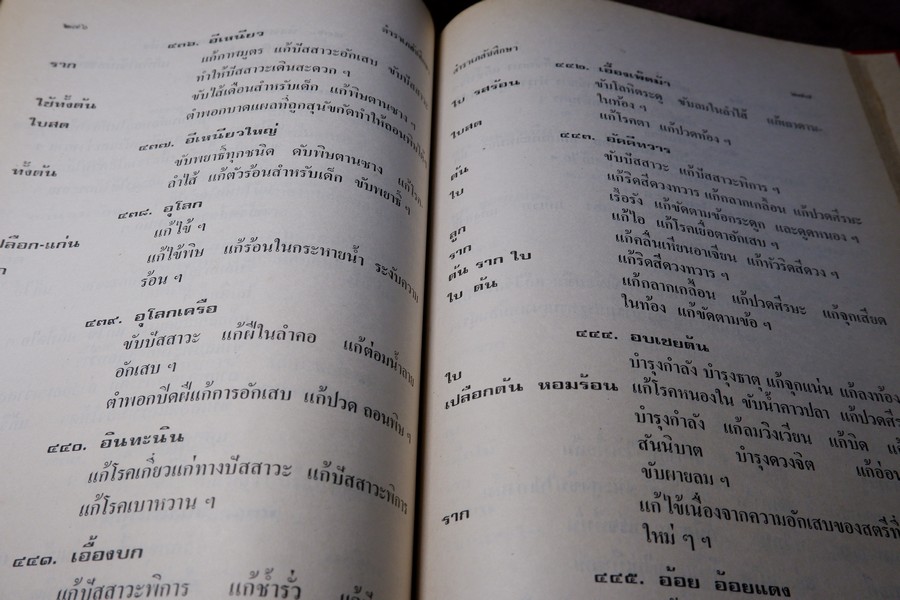 ๒๔๖
๔๓๖. อีเหนียว
ราก แก้กาฬมูตร แก้ปัสสาวะอักเสบ ขับปัสสาวะ
ทำให้ปัสสาวะเดินสะดวก ๆ
ไช้ทั้งต้น ขับไส้เดือนสำหรับเด็ก แก้พิษตานซาง ๆ
ใบสด ตำพอกบาดแผลที่ถูกสุนัขกัดทำให้ถอนพิษได้ ๆ
๔๓๗. อีเหนียวใหญ่
ทั้งต้น ขับพยาธิ์ทุกชนิด ดับพิษตานซาง แก้โรค
ลำไส้ แก้ตัวร้อนสำหรับเด็ก ขับพยาธิ์ ๆ
๔๓๘. อุโลก
แก้ไข้ ๆ
แก้ไข้พิษ แก้ร้อนในกระหายน้ำ ระงับความ
ร้อน ๆ
๔๓๙. อุโลกเครือ
ขับปัสสาวะ แก้ฝีในลำคอ แก้ต่อมน้ำลาย
อักเสบ ๆ
ตำพอกปิดฝีแก้การอักเสบ แก้ปวด ถอนพิษ ๆ
๔๔๐. อินทะนิน
แก้โรคเกี่ยวแก่ทางปัสสาวะ แก้ปัสสาวะพิการ
แก้โรคเบาหวาน ๆ
๔๔๑. เอื้องบก
แก้ปัสสาวะพิการ แก้ช้ำรั่ว
ตำราเภสัชศึกษา
๔๔๒. เอื้องเพ็ดม้า
ใบ รสร้อน ขับโลหิตระดู ขับลมในลำไส้
ในท้อง ๆ
ใบสด แก้โรคตา แก้ปวดท้อง ๆ
๔๔๓. อัคคีทวาร
ต้น ขับปัสสาวะ แก้ปัสสาวะพิการ ๆ
ใบ แก้ริดสีดวงทวาร แก้กลากเกลื้อน แก้ปวดศีรษะ
เรื้อรัง แก้ขัดตามข้อกระดูก และดูดหนอง ๆ
ลูก แก้ไอ แก้โรคเยื่อตาอักเสบ ๆ
ราก แก้คลื่นเหียนอาเจียน แก้หัวริดสีดวง ๆ
ต้น ราก ใบ แก้ริดสีดวงทวาร ๆ
ใบ ต้น แก้กลากเกลื้อน แก้ปวดศีรษะ แก้จุกเสียด
ในท้อง แก้ขัดตามข้อ ๆ
๔๔๔. อบเชยต้น
ใบ บำรุงกำลัง บำรุงธาตุ แก้จุกแน่น แก้ลงท้อง
เปลือกต้น หอมร้อน แก้โรคหนองใน ขับน้ำคาวปลา
บำรุงกำลัง แก้ลมวิงเวียน แก้บิด
สันนิบาต บำรุงดวงจิต แก้อ่อน
ขับผายลม ๆ
ราก แก้ไข้เนื่องจากความอักเสบของสตรีที่
ใหม่ ๆ ๆ
๔๔๕. อ้อย อ้อยแดง